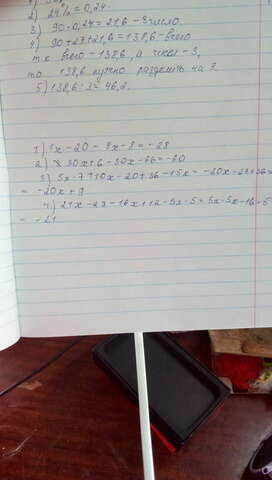 2) 24% = 0,24.
3) 90·0,24=21,6 - 3 число.
4) 90+27+21,6=138,6 - всего
т.к всего - 138,6, а чисел - 3,
то 138,6 нужно разделить на 3.
5) 138,6 : 3 = 46,2.
1) 8x - 20 - 8x - 8 = -28
2) 30x+6 - 30x - 66 = -60
3) 5x - 7+10x - 20+36 - 15x = -20x
= -20x + 9
4) 21x - 28 - 16x+12 - 5x - 5 = 5x - 5x - 16 - 5
= -21